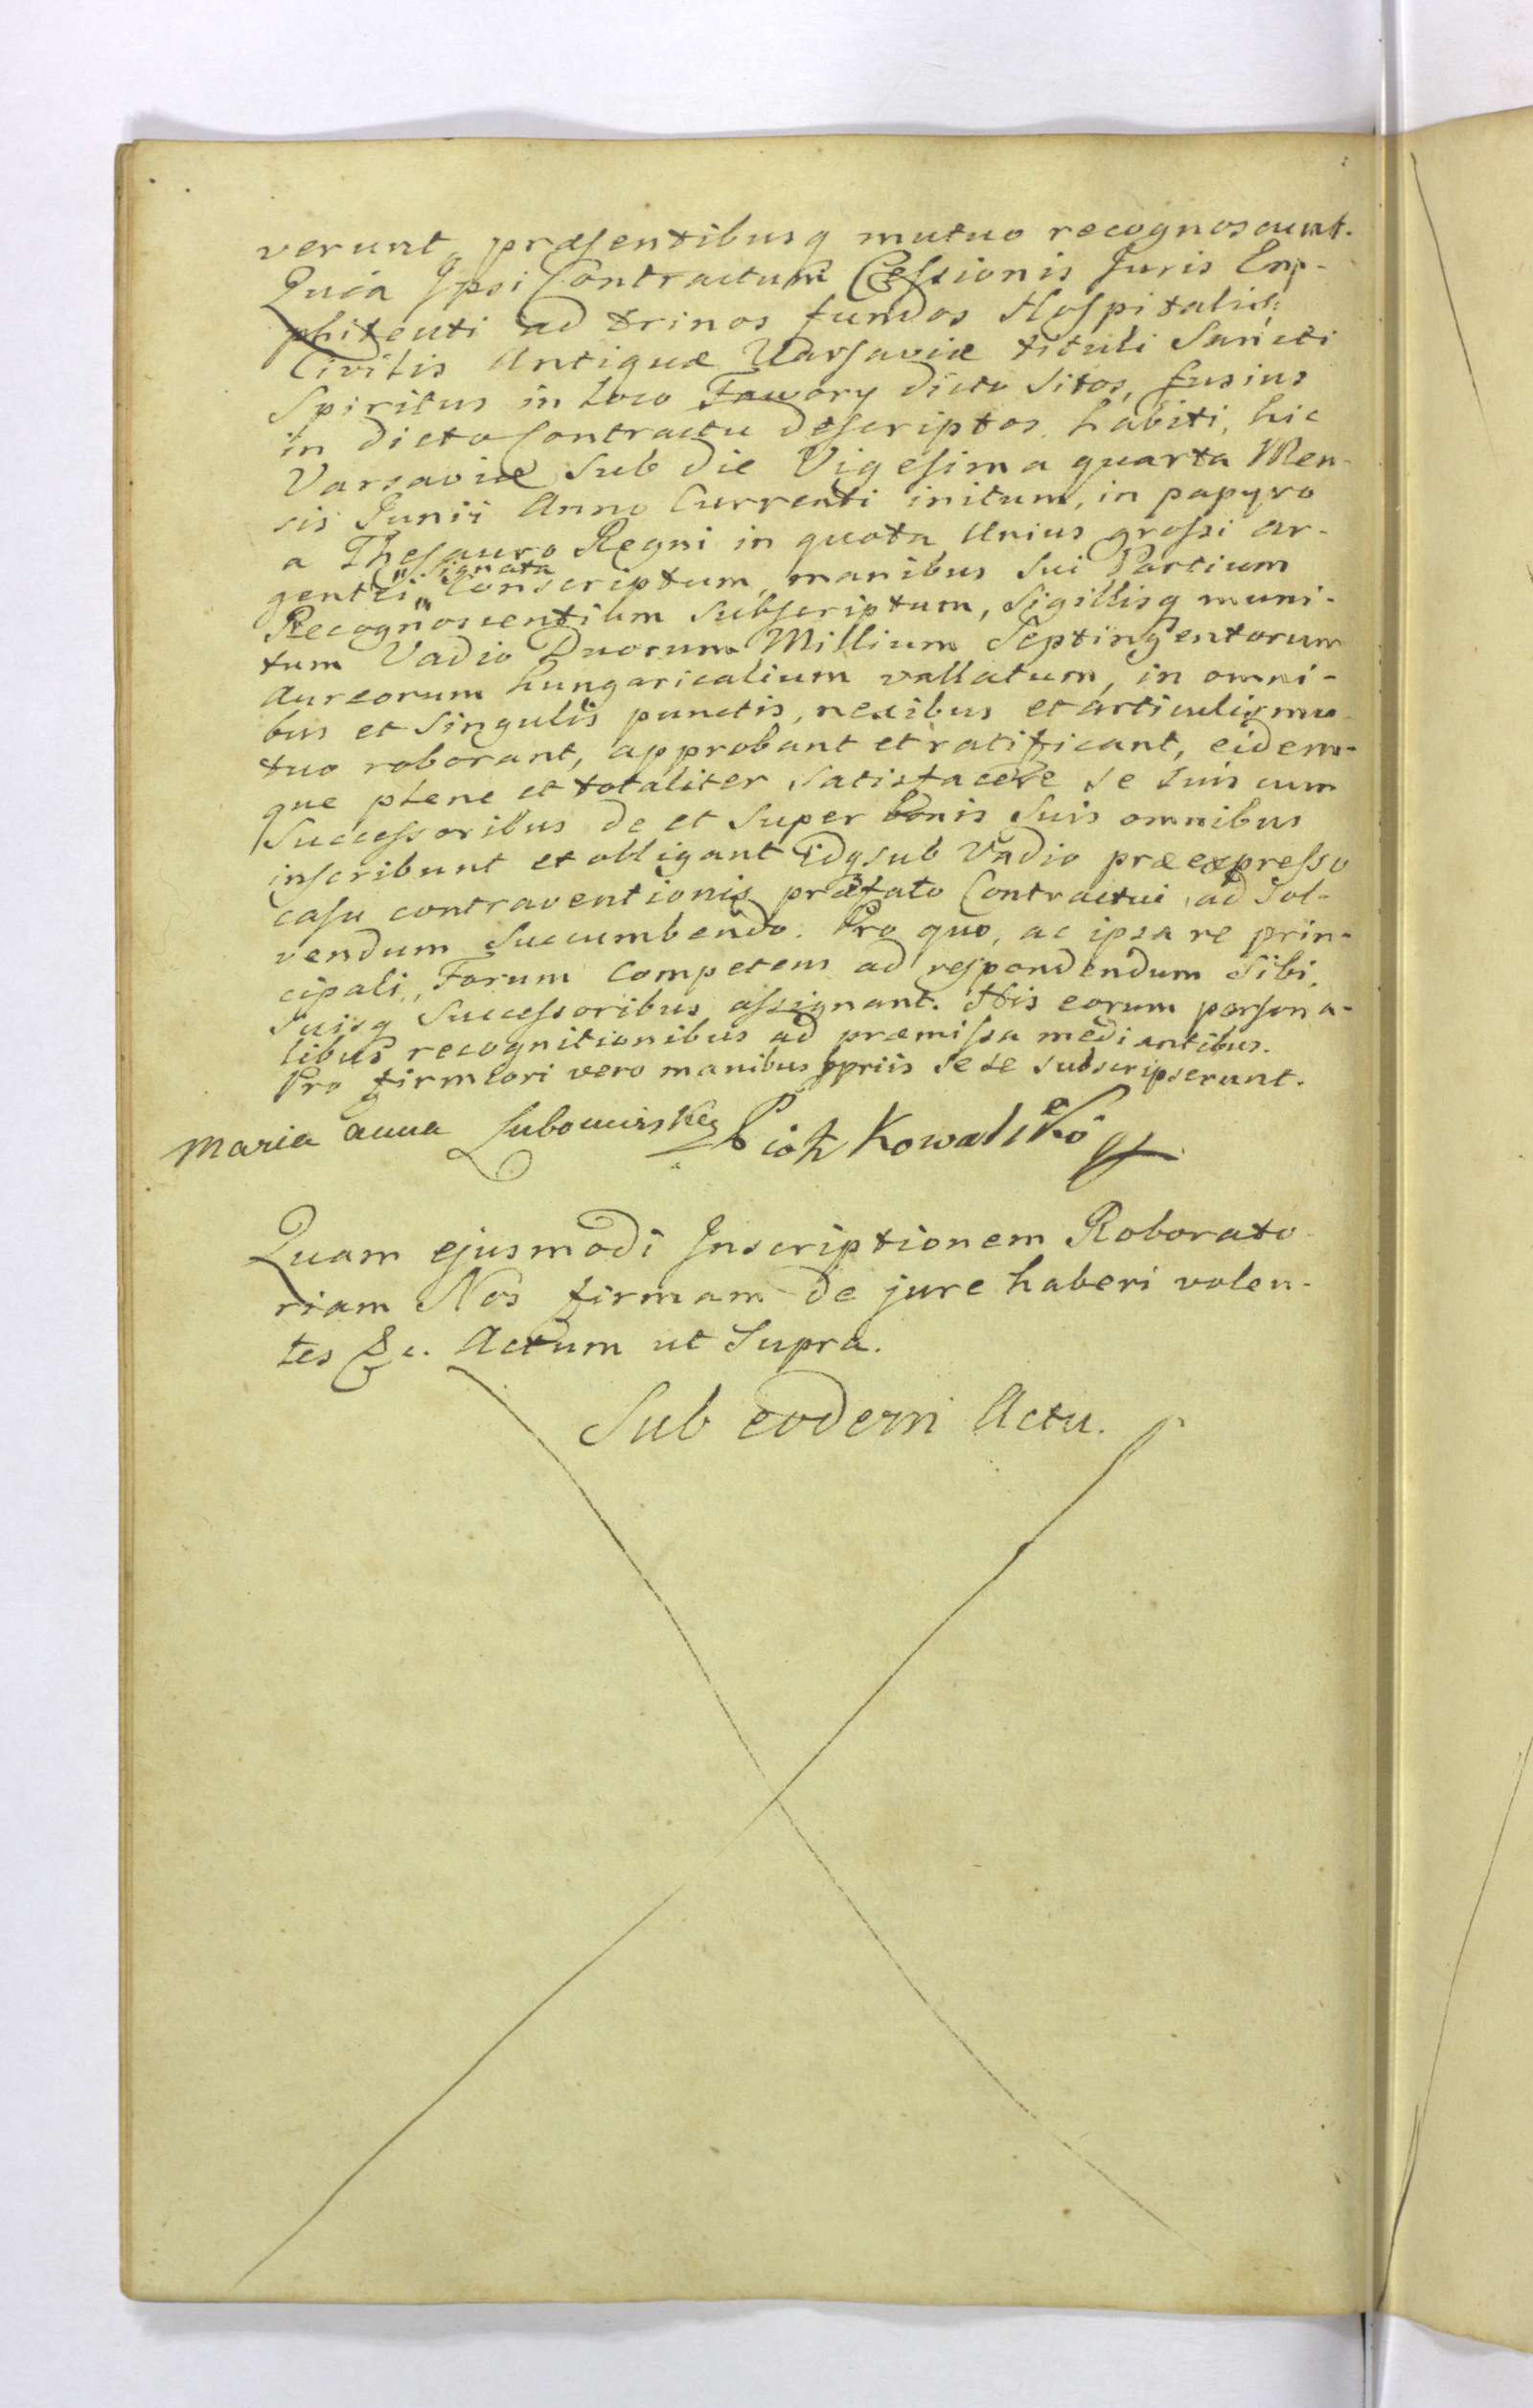 verunt, præsentibusq mutuo recognoscunt.
Quia Ipsi Contractum Cessionis Juris Emp-
phiteuti ad trinos fundos Hospitalis
Civilis Antiquæ Varsaviæ tituli Sancti
Spiritus in Loco Fawory dicto Sitos, fusius
in dicto Contractu descriptos habiti, hic
Varsaviæ Sub die Vigesima quarta Men-
sis Junii Anno Currenti initum, in papyro
a Thesauro Regni in quota Unius grossi ar-
signata
gentei " Conscriptum, manibus Sui Partium
Recognoscentium Subscriptum, Sigillisq muni-
tum Vadio Duorum Millium Septingentorum
Aureorum hungaricalium vallatum, in omni-
bus et Singulis punctis, nexibus et articulis mu-
tuo roborant, approbant et ratificant, eidem-
que plene et totaliter Satisfacere Se Suis cum
Successoribus de et Super bonis Suis omnibus
inscribunt et obligant Idq sub Vadio præexpresso
casu contraventionis præfato Contractui, ad Sol-
vendum Succumbendo. Pro quo, ac ipsa re prin-
cipali, Forum Competens ad respondendum Sibi,
Suisq Successoribus assignant. His eorum persona-
libus recognitionibus ad præmissa mediantibus.
Pro firmiori vero manibus ppriis Sese subscripserunt.
Maria Anna Lubomirska Piotr Kowalski
Quam ejusmodi Inscriptionem Roborato-
riam Nos firmam de jure haberi volen-
tes &c. Actum ut Supra.
Sub eodem Actu.